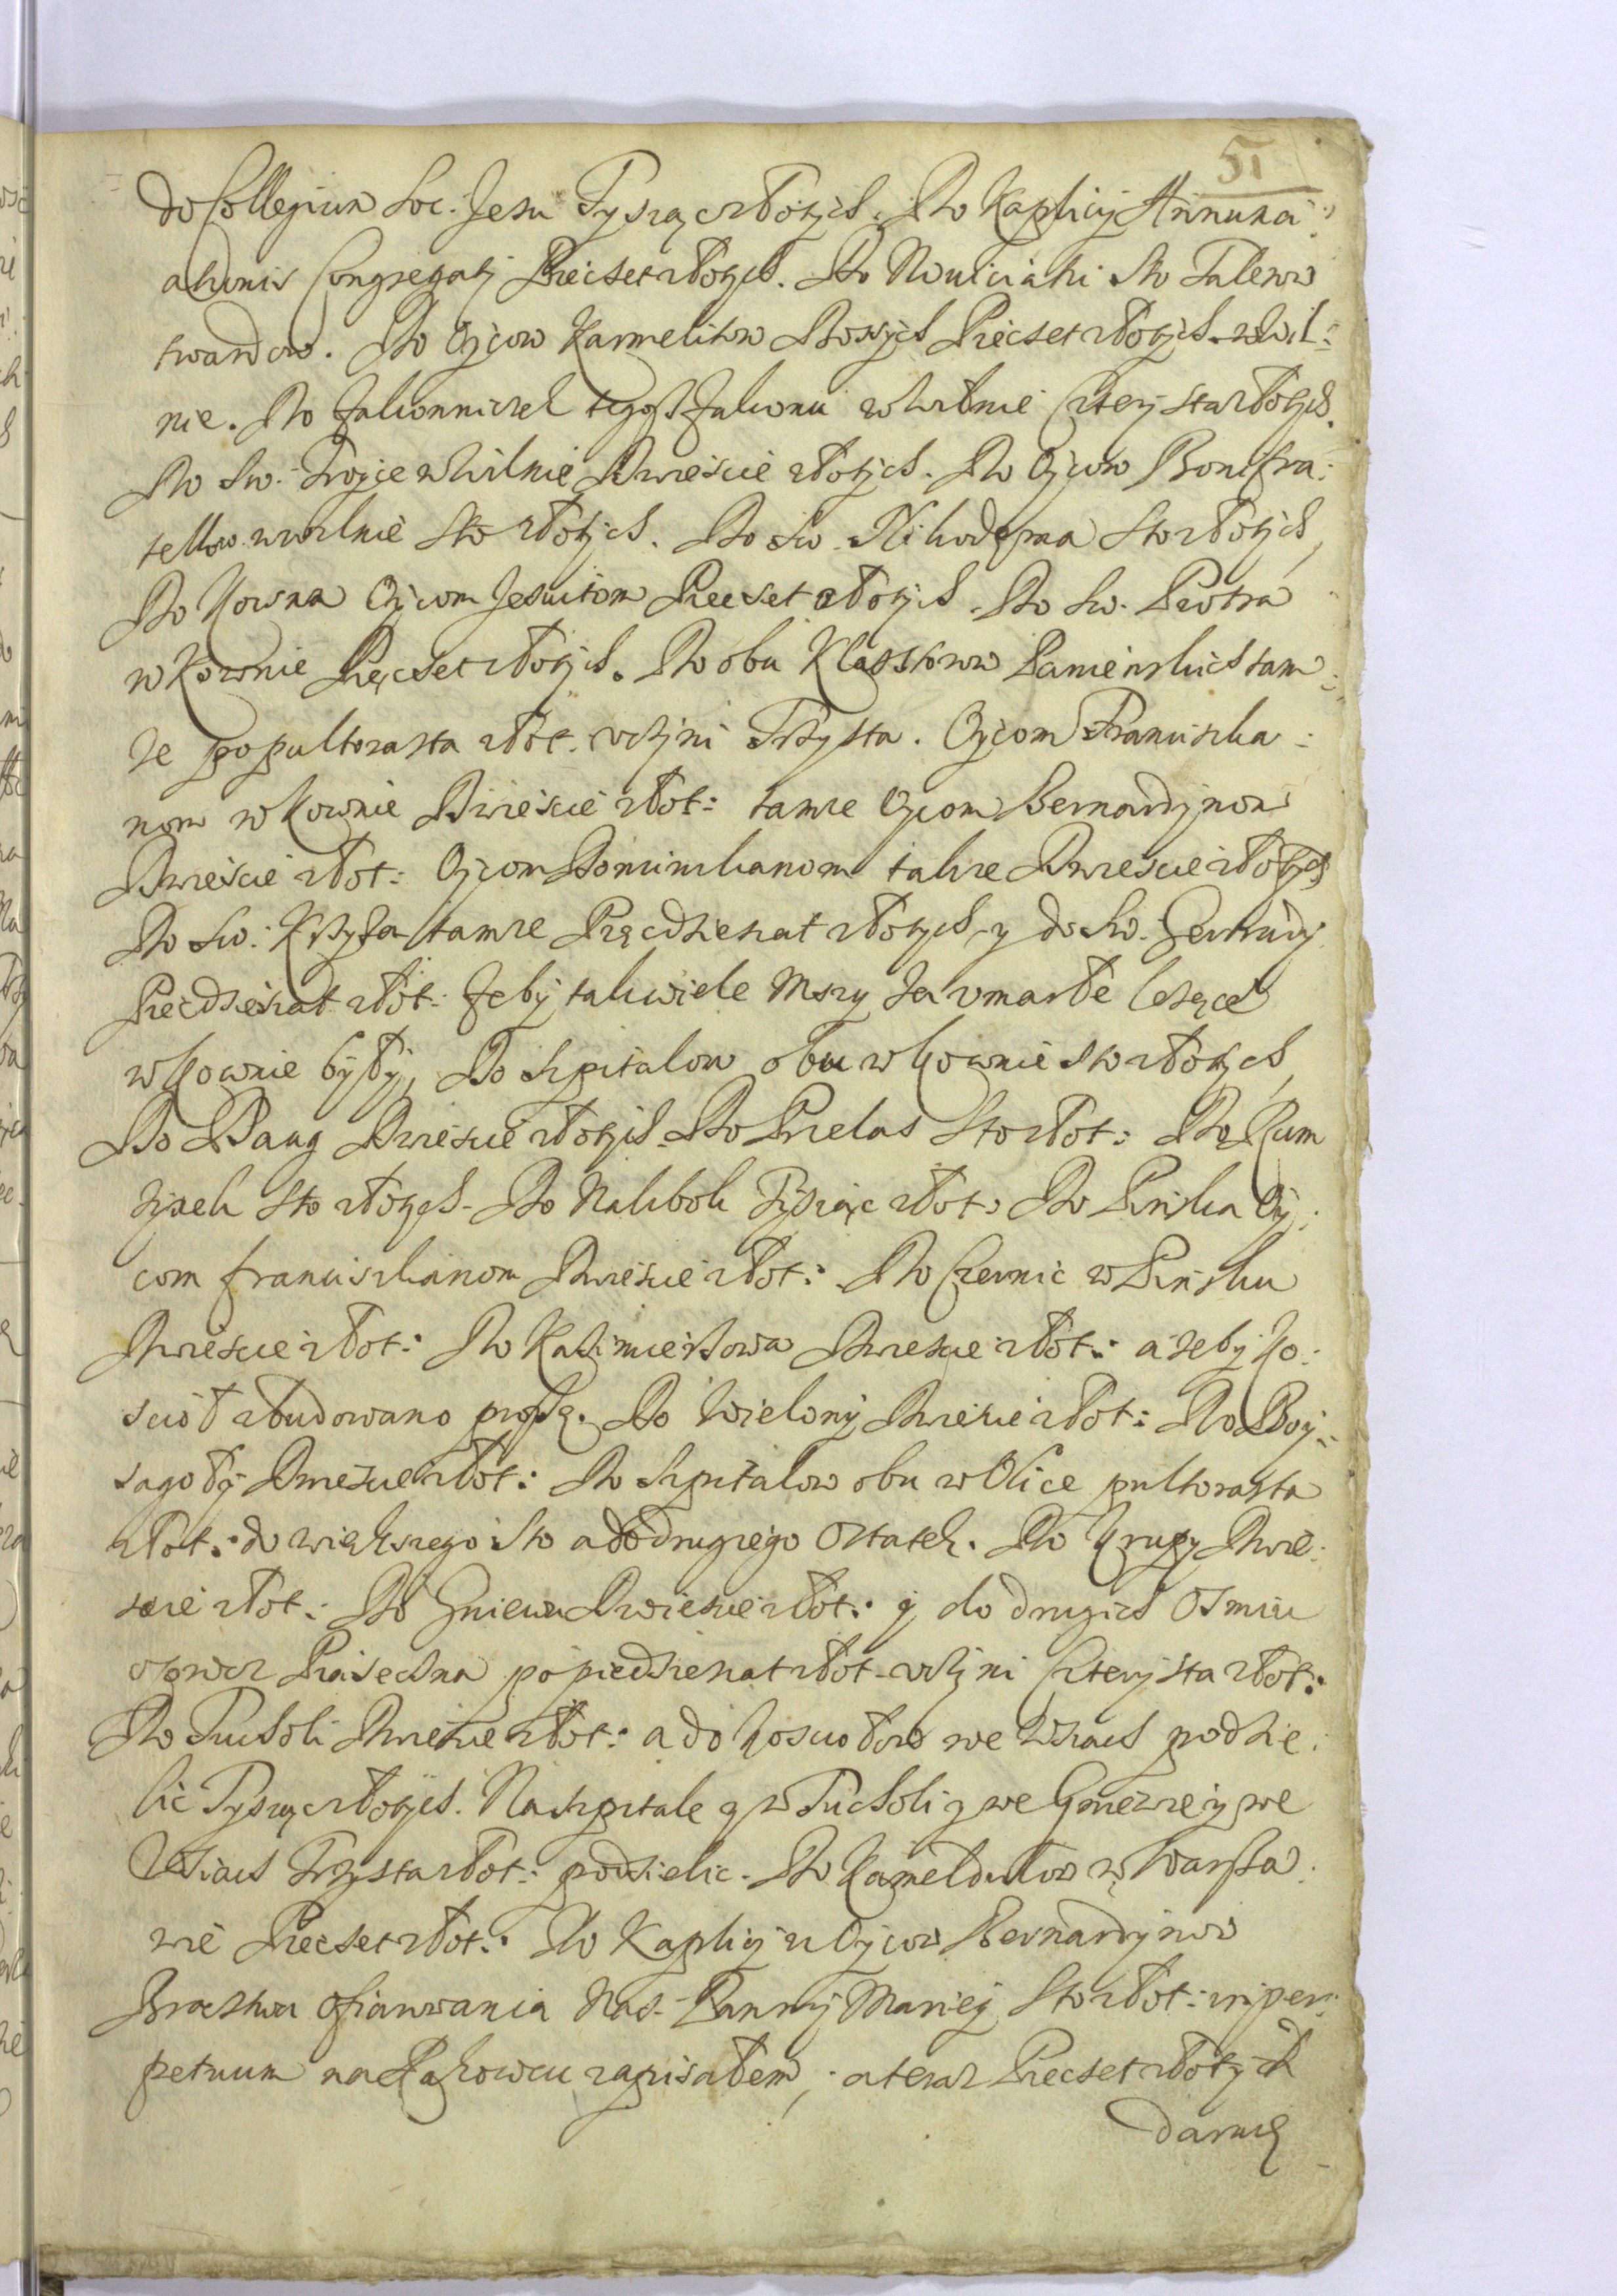 51
do Collegium Soc. Jesu Tysiąc złotych. Do Kaplicy Annunci:
ationis Congregatj Piecset złotych. Do Nowiciatu Sto Talerow
twardow. Do Oycow Karmelitow Bosych Piecset złotych w Wil:
nie. Do Zakonniczek tegosz Zakonu w Wilnie Cztery sta złotych.
Do Sw. Troyce w Wilnie Dwiescie złotych. Do Oycow Bonifra:
tellow w Wilnie Sto złotych. Do Sw. Nikodema Sto złotych,
Do Kowna Oycom Jesuitom Piecset złotych. Do Sw. Piotra
w Kownie Pięcset złotych. Do obu Klasztorow Panienskich tam:
ze po pultorasta złot. uczyni Trzysta. Oycom Franciszka:
nom w Kownie Dwiescie złot: tamze Oycom Bernardynom
Dwiescie złot: Oycom Dominikanom takze Dwiescie złotych
Do Sw. Krzyża tamze Pięcdziesiat złotych, y do Sw. Gertrudy
Piecdziesiat złot: żeby tak wiele Mszy za umarłe lezące
w Kownie były, Do Szpitalow obu w Kownie Sto złotych,
Do Daug Dwiescie złotych. Do Prelas Sto złot: Do Rum
szyszek Sto złotych. Do Nalibok Tysiąc złot: Do Pinska Oy:
com Franciszkanom Dwiescie złot: Do Czernic w Pinsku
Dwiescie złot: Do Kazimierzowa Dwiescie złot: a zeby Ko:
scioł zbudowano proszę. Do Wielony Dwiescie złot: Do Boy:
sagoły Dwiescie złot: Do Szpitalow obu w Olice pultorasta
złot: do większego Sto a do drugiego Ostatek. Do Krupy Dwie:
scie złot: Do Gniewu Dwiescie złot: y do drugich Osmiu
oprocz Piaseczna po piecdziesiat złot. uczyni Cztery sta złot:
Do Tucholi Dwiescie złot: a do Kosciołow we Wsiach podzie:
lic Tysiąc złotych. Na szpitale y w Tucholi y we Gniewie y we
Wsiach Trzysta złot: podzielic. Do Kamedułow w Warsza:
wie Piecset złot: Do Kaplicy u Oycow Bernardynow
Bractwa ofiarowania Nas. Panny Maryey Sto złot: in per:
petuum na zapisałem, a teraz Piecset złotych
daruię